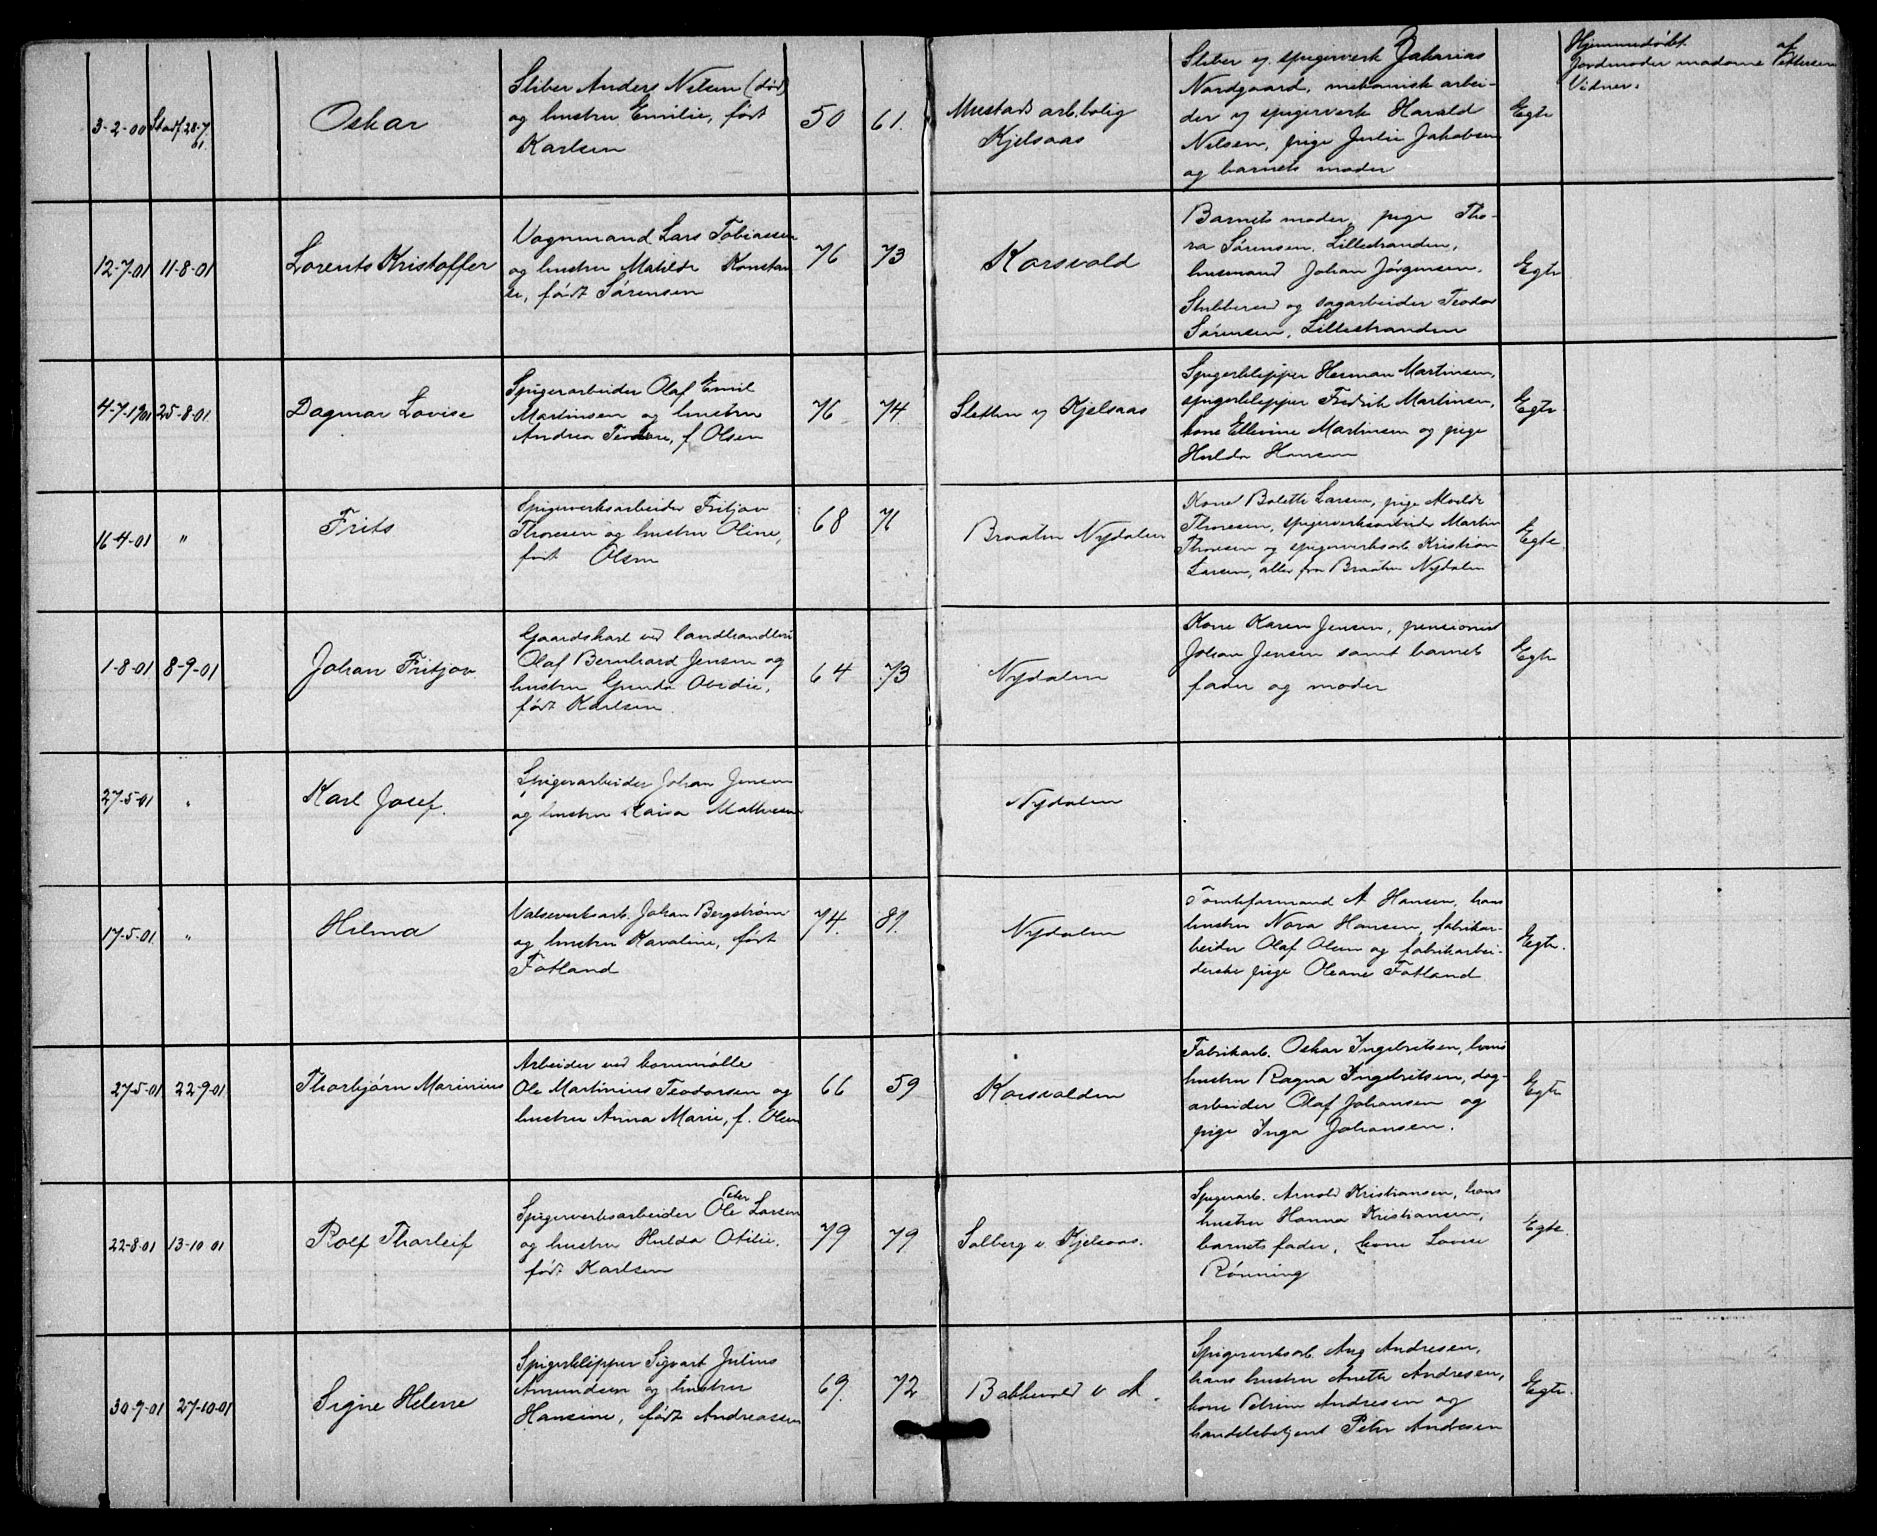 3-2-00
Stadf. 28-7
01.
Oskar
Sliber Anders Nilsen (död)
og hustru Emilie, født
Karlsen
50
61.
Mustads arb.bolig
Kjelsaas
Sliber v. spigerverk Zakarias
Nordgaard, mekanisk arbei-
der v. spigerverk Harald
Nilsen, pige Julie Jakobsen
og barnets moder
Egte
Hjemmedøbt af
Jordmoder madame Pettersen
Vidner.
12-7-01
11-8-01
Lorents Kristoffer
Vognmand Lars Tobiassen
og hustru Matilde Konstan
se, født Sørensen
76
73
Korsvold
Barnets moder, pige Tho-
ra Sørensen, Lillestranden,
husmand Johan Jørgensen,
Stubberud og sagarbeider Teodor
Sørensen, Lillestranden
Egte
4-7-1901
25-8-01
Dagmar Lovise
Spigerarbeider Olaf Emil
Martinsen og hustru
Andrea Teodore, f. Olsen
76
74.
Sletten v. Kjelsaas
Spigerklipper Herman Martinsen,
spigerklipper Fredrik Martinsen,
kone Ellevine Martinsen og pige
Hulda Hansen
Egte
16-4-01
"
Frits
Spigerverksarbeider Fritjov
Thoresen og hustru Oline,
født Olsen
68
71
Braaten Nydalen
Kone Bolette Larsen, pige
Thoresen, spigerverksarbeider Martin
Thoresen og spigerverksarb. Kristian
Larsen, alle fra Braaten Nydalen
Egte
1-8-01
8-9-01
Johan Fritjov
Gaardskarl ved landhandleri
Olaf Bernhard Jensen og
hustru Gunda Ovidie,
født Karlsen
64
73
Nydalen
Kone Karen Jensen, pensionist
Johan Jensen samt barnets
fader og moder
Egte
27-5-01
"
Karl Josef.
Spigerarbeider Johan Jensen
og hustru Kaisa
Nydalen
17-5-01
"
Hilma
Valseverksarb. Johan Bergstrøm
og hustru Karoline, født
Fotland
74.
81.
Nydalen
Tomteformand A. Hansen, hans
hustru Nora Hansen, fabrikar-
beider Olaf Olsen og fabrikarbei-
derske pige Oleane Fotland
Egte.
27-5-01
22-9-01
Thorbjørn Marinius
Arbeider ved kornmølle
Ole Martinius Teodorsen og
hustru Anna Marie, f. Olsen
66
59
Korsvolden
Fabrikarb. Oskar Ingebritsen, hans
hustru Ragna Ingebritsen, dag-
arbeider Olaf Johansen og
pige Inga Johansen.
Egte
22-8-01
13-10 01
Rolf Thorleif
Peter
Spigerverksarbeider Ole Larsen
og hustru Hulda Otilie,
født Karlsen
79
79
Solberg v. Kjelsaas.
Spigerarb. Arnold Kristiansen, hans
hustru Hanna Kristiansen,
barnets fader, kone Lovise
Rønning
Egte.
30-9-01
27-10-01
Signe Helene
Spigerklipper Sigvart Julius
Amundsen og hustru
Hansine, født Andreassen
69.
72
Bakkevold v. A.
Spigerverksarb. Aug Andresen,
hans hustru Anette Andresen,
kone Petrine Andresen og
handelsbetjent Peter Andresen
Egte.